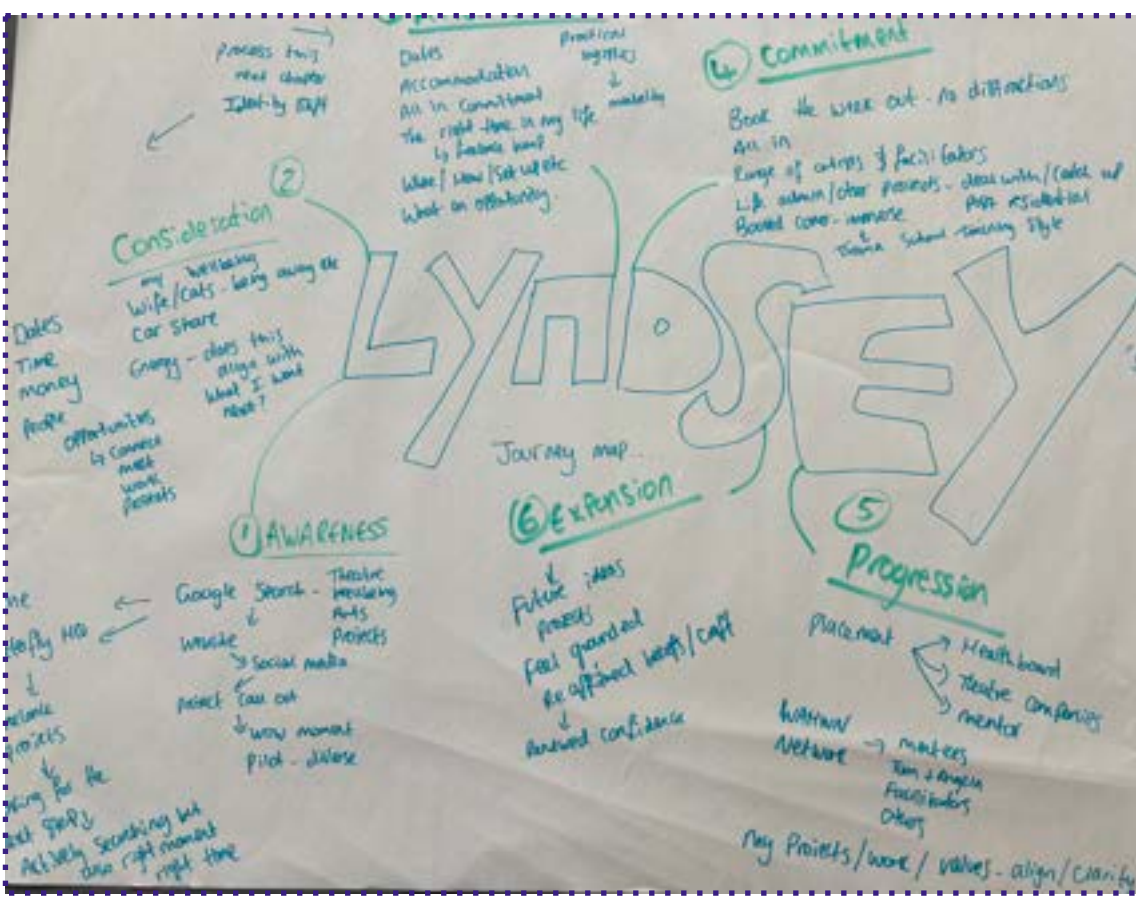 process this
next chapter
Identity shift
Dates
Accommodation
All in commitment
The right time in my life
What an opportunity.
Practical
④ Commitment
Book the week out - no distractions
All in
Range of artists & facilitators
Life admin/other projects - deal with/catch up
post residential
school training style
②
Consideration
my wellbeing
Wife/Cats - being away etc
Car share
Energy - does this
align with
what I want
next?
Dates
Time
money
People
opportunities
↳ connect
meet
work
projects
LYNDSEY
Journey map...
① AWARENESS
Google Search - Theatre
wellbeing
Arts
Projects
Website
Social media
Project call out
wow moment
Pilot - disclose
projects
Actively searching but
right moment
right time
⑥ Expension
Future ideas
projects
Feel grounded
Re affirmed beliefs/craft
Renewed confidence
⑤
Progression
Placement
Health board
Theatre companies
mentor
WAHWN
Network
Tom + Angela
Facilitators
Others
my Projects/work/values - align/clarity